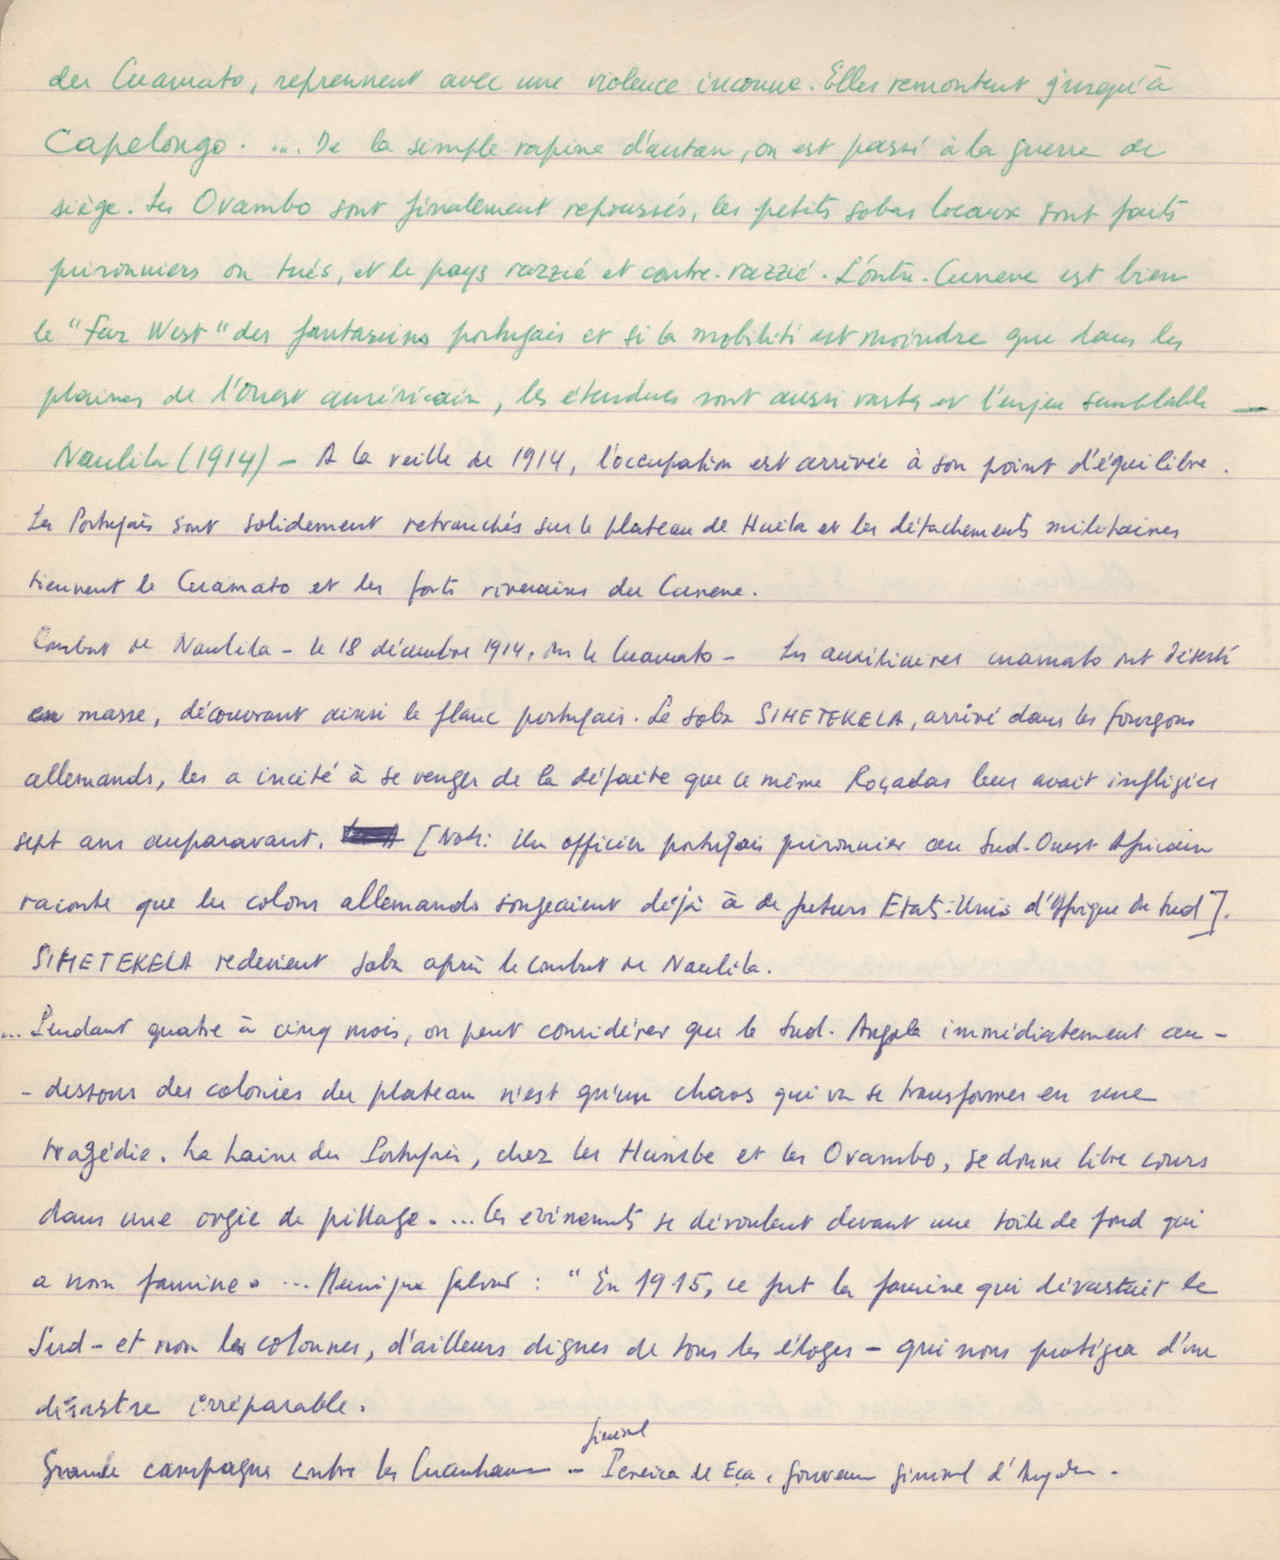 des Cuamato, reprennent avec une violence inconnue. Elles remontent jusqu'à
Capelongo. ... De la simple rapine d'antan, on est passé à la guerre de
siège. Les Ovambo sont finalement repoussés, les petits sobas locaux sont faits
prisonniers ou tués, et le pays razzié et contre-razzié. L'Outre-Cunene est bien
le "Far West" des fantassins portugais et si la mobilité est moindre que dans les
plaines de l'Ouest américain, les étendues sont aussi vastes et l'enjeu semblable —
Naulila (1914) - A la veille de 1914, l'occupation est arrivée à son point d'équilibre.
Les Portugais sont solidement retranchés sur le plateau de Huila et les détachements militaires
tiennent le Cuamato et les forts riverains du Cunene.
Combat de Naulila - le 18 décembre 1914, le Cuamato - Les auxiliaires cuamato ont déserté
en masse, découvrant ainsi le flanc portugais. Le soba SIHETEKELA, arrivé dans les fourgons
allemands, les a incité à se venger de la défaite que ce même Roçadas leur avait infligées
sept ans auparavant. [Note: Un officier portugais prisonnier au Sud-Ouest Africain
raconte que les colons allemands songeaient déjà à de futurs Etats-Unis d'Afrique du Sud].
SIHETEKELA redevient soba après le combat de Naulila.
... Pendant quatre à cinq mois, on peut considérer que le Sud-Angola immédiatement au-
-dessous des colonies du plateau n'est qu'un chaos qui va se transformer en une
tragédie. La haine du Portugais, chez les Humbe et les Ovambo, se donne libre cours
dans une orgie de pillage. ... Ces événements se déroulent devant une toile de fond qui
a nom famine. ... : "En 1915, ce fut la famine qui dévastait le
Sud - et non les colonnes, d'ailleurs dignes de tous les éloges - qui nous protégea d'un
désastre irréparable.
Grande campagne contre les Cuanhama - général Pereira de Eça, gouverneur général d'Angola.